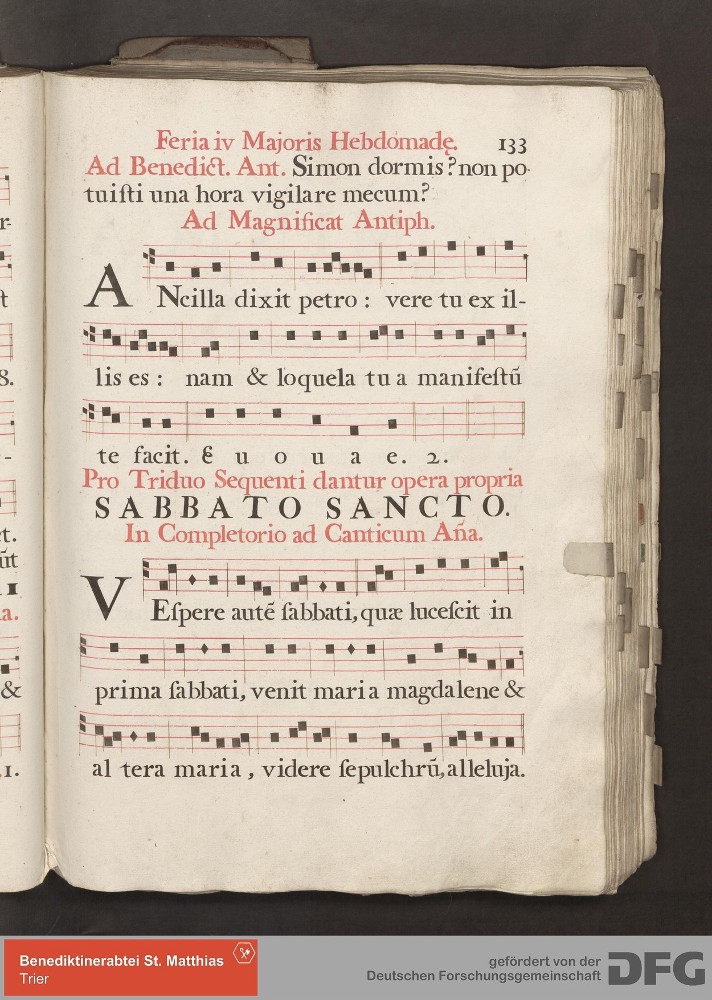 Feria iv Majoris Hebdomadę. 133
Ad Benedict. Ant. Simon dormis? non po-
tuiſti una hora vigilare mecum?
Ad Magnificat Antiph.
ANcilla dixit petro: vere tu ex il-
lis es: nam & loquela tua manifeſtũ
te facit. E u o u a e. 2.
Pro Triduo Sequenti dantur opera propria
SABBATO SANCTO.
In Completorio ad Canticum Aña.
VEſpere autẽ ſabbati, quæ luceſcit in
prima ſabbati, venit maria magdalene &
altera maria, videre ſepulchrũ, alleluja.
r-
t
8.
-
ct.
ũt
1
a.
&
1.
Benediktinerabtei St. Matthias
Trier
gefördert von der
Deutschen Forschungsgemeinschaft
DFG